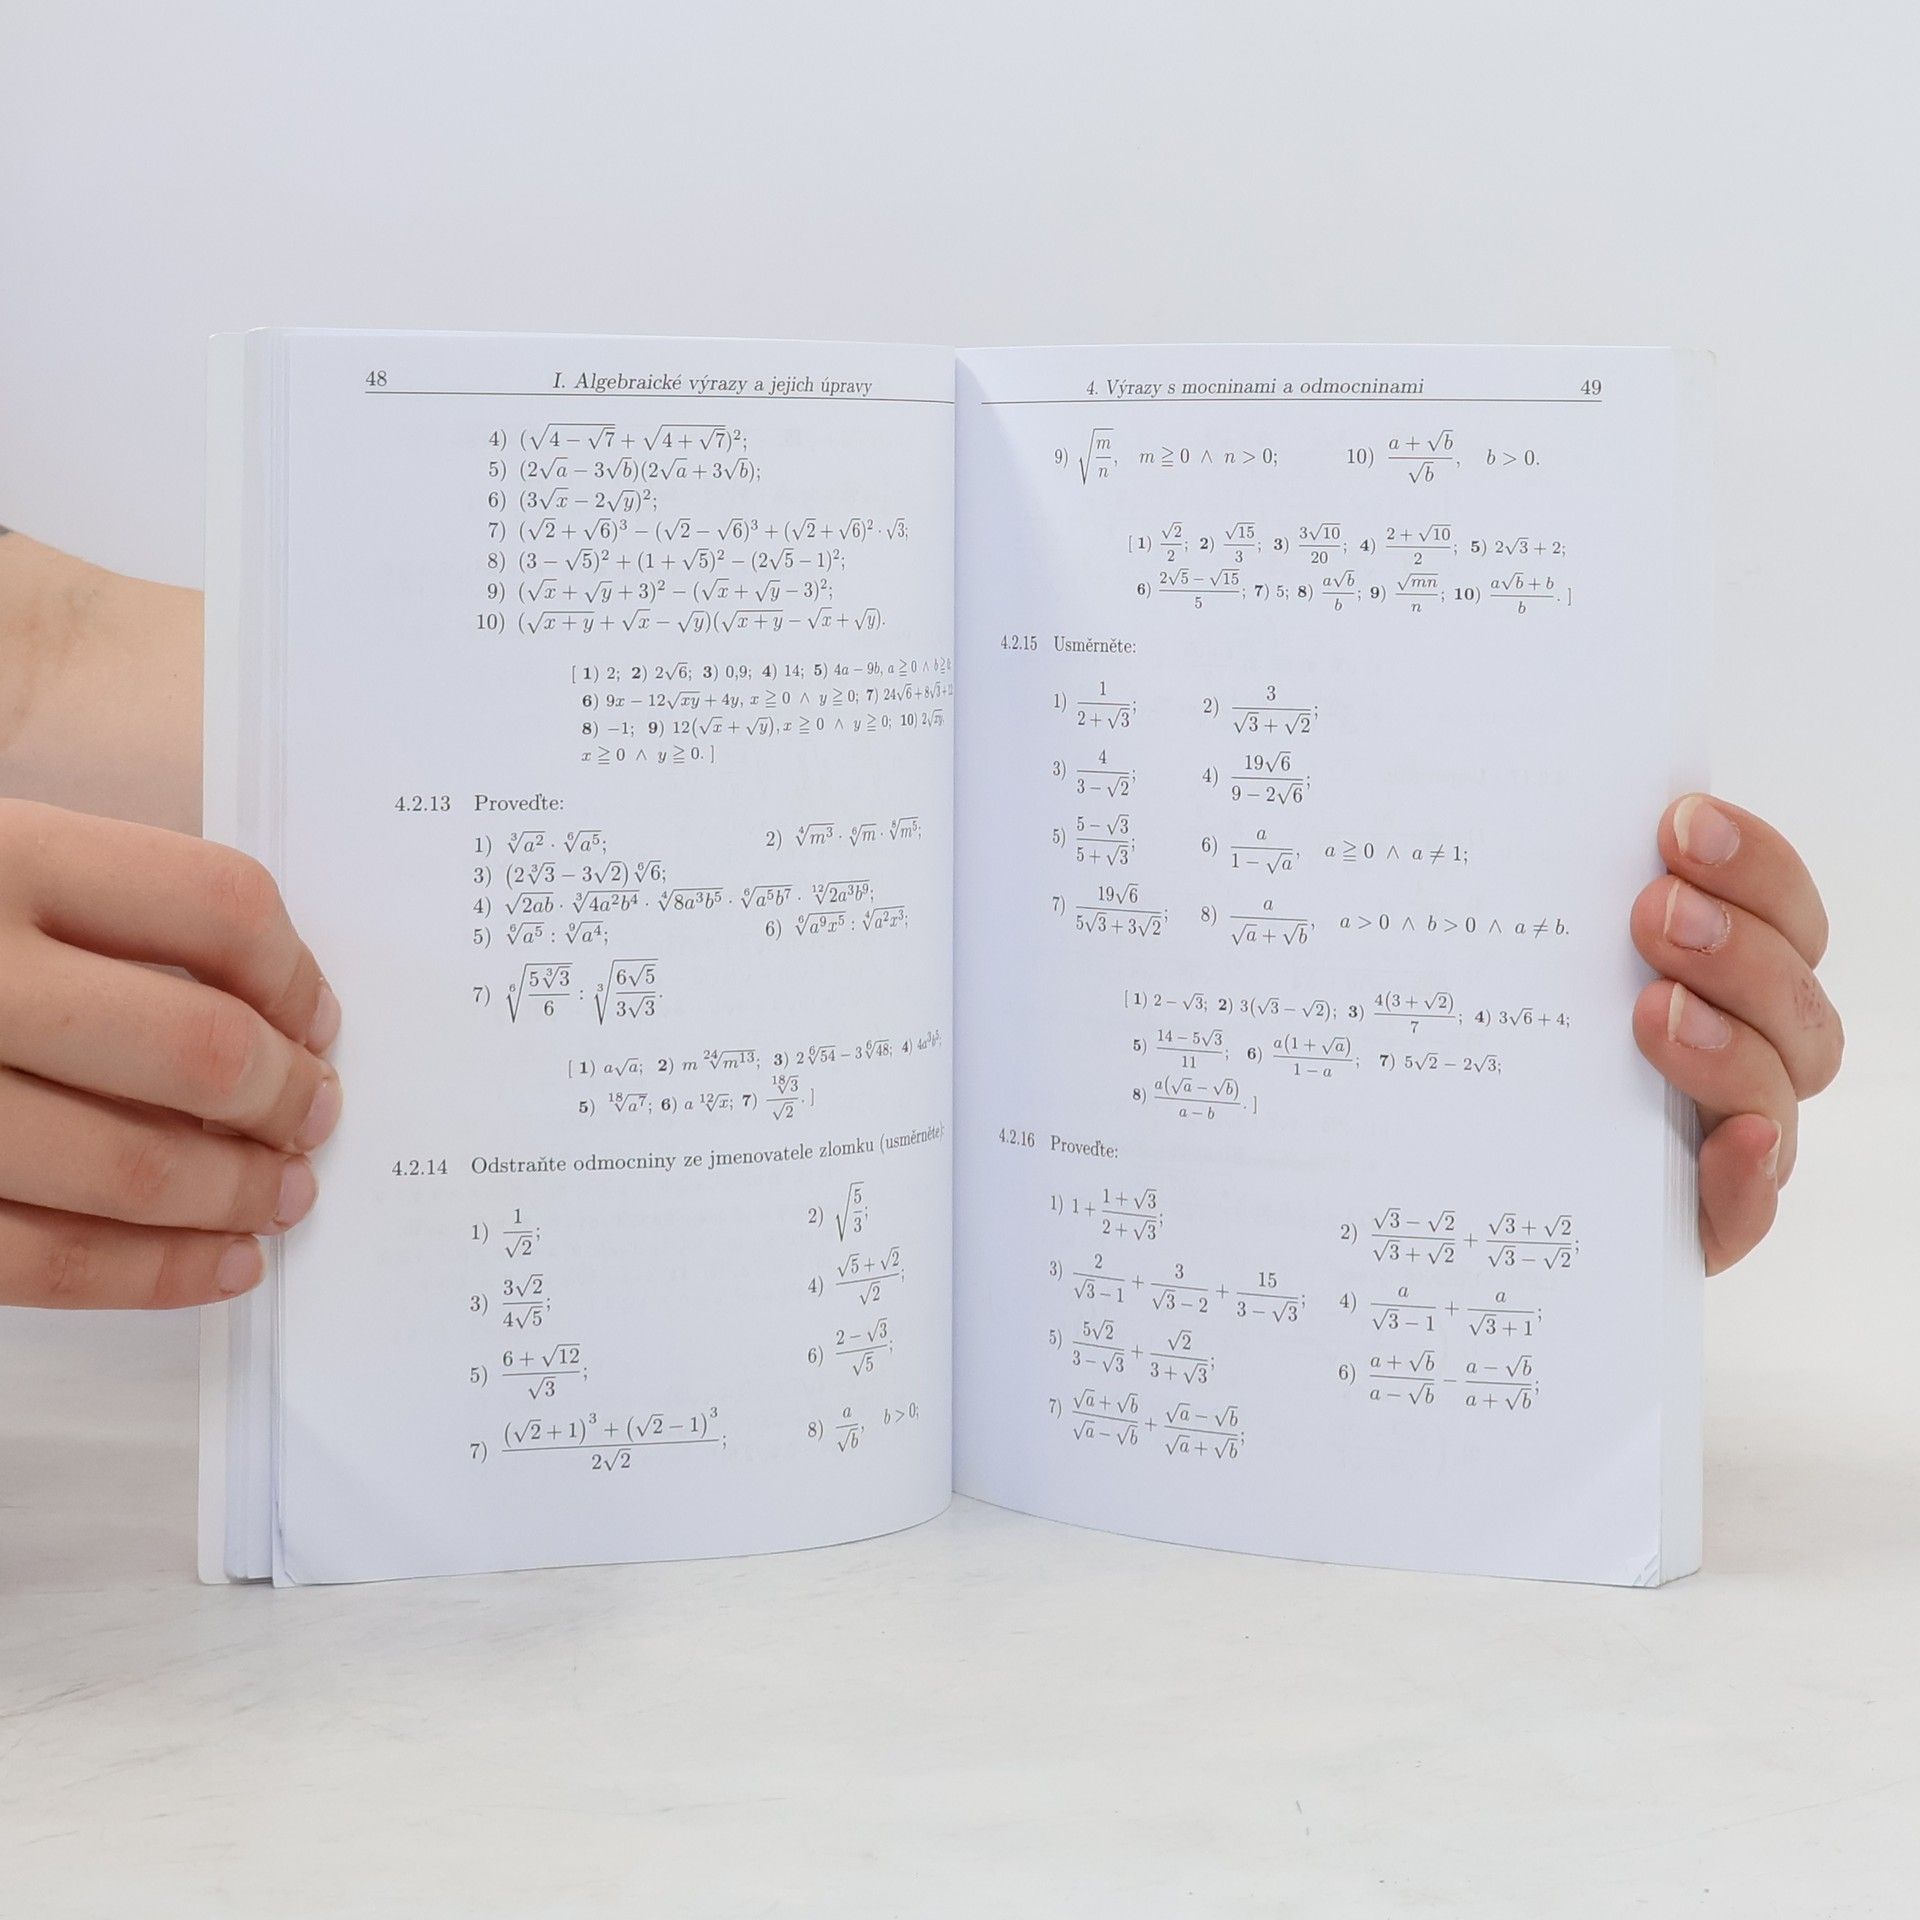 48 I. Algebraické výrazy a jejich úpravy
4) (√(4 − √7) + √(4 + √7))²;
5) (2√a − 3√b)(2√a + 3√b);
6) (3√x − 2√y)²;
7) (√2 + √6)³ − (√2 − √6)³ + (√2 + √6)² · √3;
8) (3 − √5)² + (1 + √5)² − (2√5 − 1)²;
9) (√x + √y + 3)² − (√x + √y − 3)²;
10) (√(x + y) + √x − √y)(√(x + y) − √x + √y).
[ 1) 2; 2) 2√6; 3) 0,9; 4) 14; 5) 4a − 9b, a ≧ 0 ∧ b ≧ 0;
6) 9x − 12√(xy) + 4y, x ≧ 0 ∧ y ≧ 0; 7) 24√6 + 8√3 + 12
8) −1; 9) 12(√x + √y), x ≧ 0 ∧ y ≧ 0; 10) 2√(xy),
x ≧ 0 ∧ y ≧ 0. ]
4.2.13 Proveďte:
1) ∛(a²) · ⁶√(a⁵); 2) ⁴√(m³) · ⁶√m · ⁸√(m⁵);
3) (2∛3 − 3√2) ⁶√6;
4) √(2ab) · ∛(4a²b⁴) · ⁴√(8a³b⁵) · ⁶√(a⁵b⁷) · ¹²√(2a³b⁹);
5) ⁶√(a⁵) : ⁹√(a⁴); 6) ⁶√(a⁹x⁵) : ⁴√(a²x³);
7) ⁶√(5∛3/6) : ∛(6√5/(3√3)).
[ 1) a√a; 2) m ²⁴√(m¹³); 3) 2 ⁶√54 − 3 ⁶√48; 4) 4a³b⁵;
5) ¹⁸√(a⁷); 6) a ¹²√x; 7) ¹⁸√3/√2. ]
4.2.14 Odstraňte odmocniny ze jmenovatele zlomku (usměrněte):
1) 1/√2; 2) √(5/3);
3) 3√2/(4√5); 4) (√5 + √2)/√2;
5) (6 + √12)/√3; 6) (2 − √3)/√5;
7) ((√2 + 1)³ + (√2 − 1)³)/(2√2); 8) a/√b, b > 0;
4. Výrazy s mocninami a odmocninami 49
9) √(m/n), m ≧ 0 ∧ n > 0; 10) (a + √b)/√b, b > 0.
[ 1) √2/2; 2) √15/3; 3) 3√10/20; 4) (2 + √10)/2; 5) 2√3 + 2;
6) (2√5 − √15)/5; 7) 5; 8) a√b/b; 9) √(mn)/n; 10) (a√b + b)/b. ]
4.2.15 Usměrněte:
1) 1/(2 + √3); 2) 3/(√3 + √2);
3) 4/(3 − √2); 4) 19√6/(9 − 2√6);
5) (5 − √3)/(5 + √3); 6) a/(1 − √a), a ≧ 0 ∧ a ≠ 1;
7) 19√6/(5√3 + 3√2); 8) a/(√a + √b), a > 0 ∧ b > 0 ∧ a ≠ b.
[ 1) 2 − √3; 2) 3(√3 − √2); 3) 4(3 + √2)/7; 4) 3√6 + 4;
5) (14 − 5√3)/11; 6) a(1 + √a)/(1 − a); 7) 5√2 − 2√3;
8) a(√a − √b)/(a − b). ]
4.2.16 Proveďte:
1) 1 + (1 + √3)/(2 + √3); 2) (√3 − √2)/(√3 + √2) + (√3 + √2)/(√3 − √2);
3) 2/(√3 − 1) + 3/(√3 − 2) + 15/(3 − √3); 4) a/(√3 − 1) + a/(√3 + 1);
5) 5√2/(3 − √3) + √2/(3 + √3); 6) (a + √b)/(a − √b) − (a − √b)/(a + √b);
7) (√a + √b)/(√a − √b) + (√a − √b)/(√a + √b);